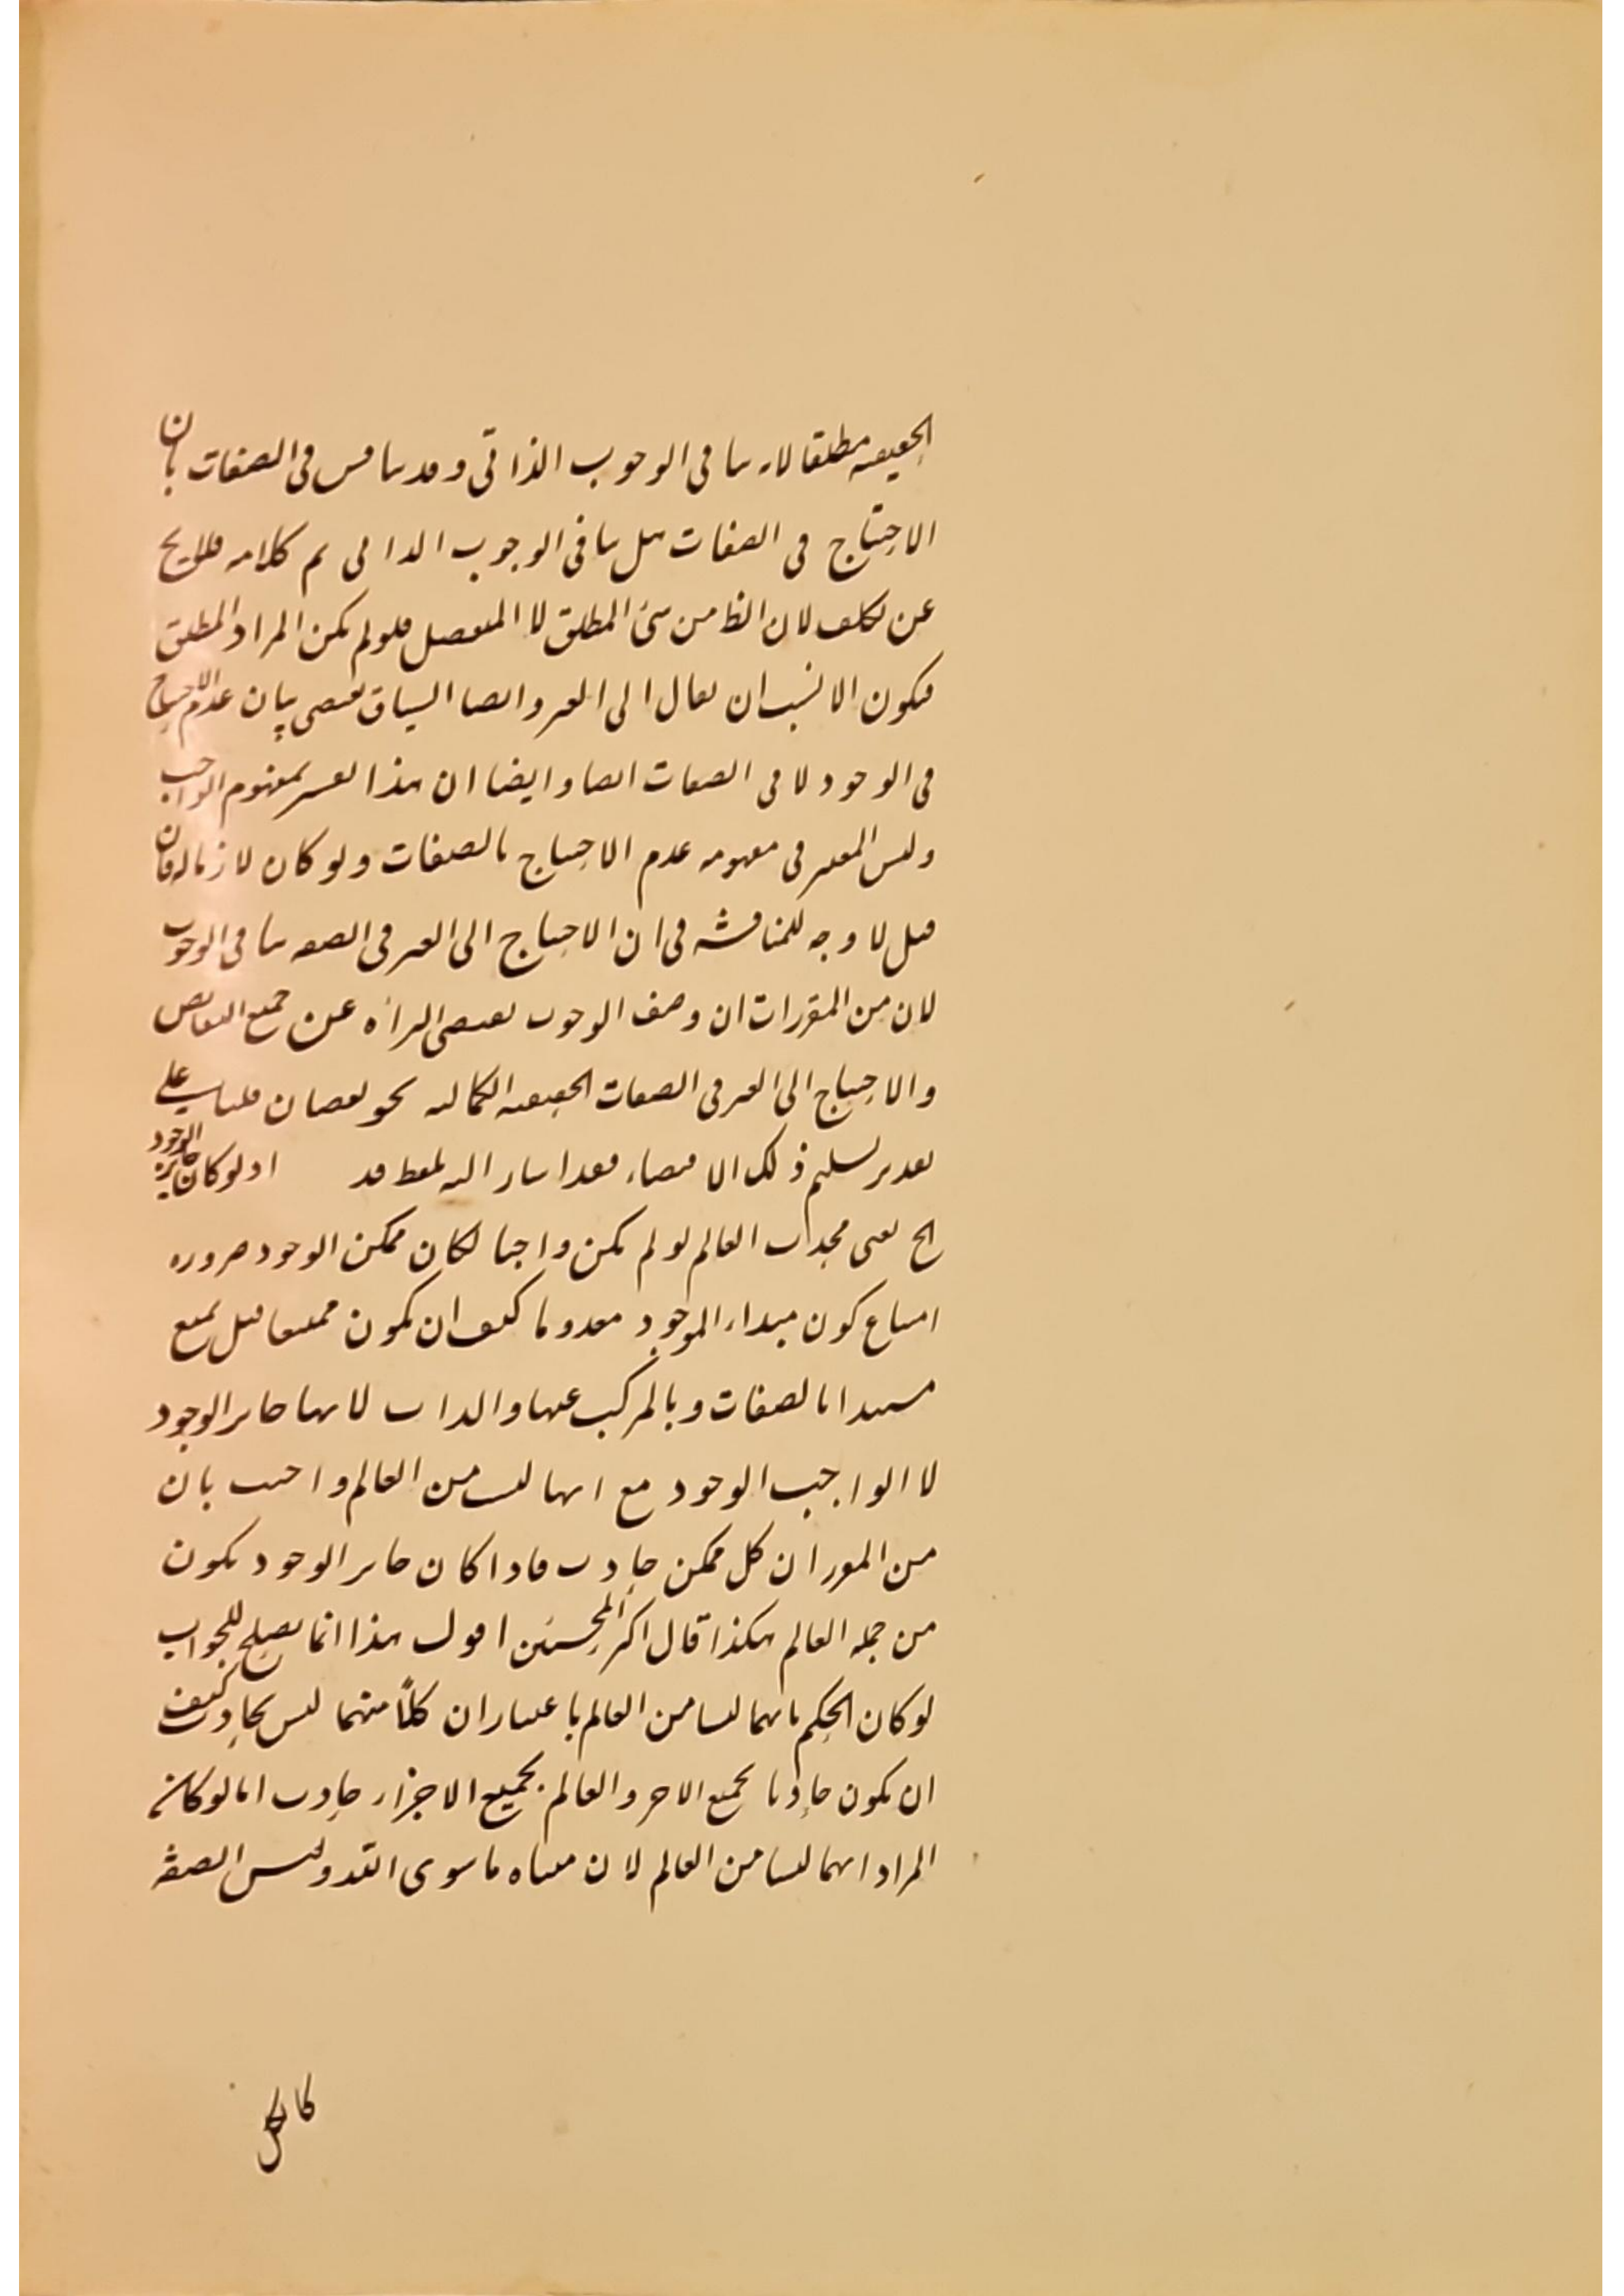 الحقيقيه مطلقا لانه ينافى الوجوب الذاتى وقد يناقش فى الصفات بان
الاحتياج فى الصفات هل ينافى الوجوب الذاتى تم كلامه فلا يخ
عن تكلف لان الظ من شئ المطلق لا المنفصل فلو لم يكن المراد المطلق
فيكون الانسب ان يقال الى الغير وايضا السياق يقتضى بيان عدم الاحتياج
فى الوجود لا فى الصفات ايضا وايضا ان هذا تفسير لمفهوم الواجب
وليس المعتبر فى مفهومه عدم الاحتياج بالصفات ولو كان لازما له فان
قيل لا وجه للمناقشه فى ان الاحتياج الى الغير فى الصفه ينافى الوجوب
لان من المقررات ان وصف الوجوب يقتضى البراءه عن جميع النقايص
والاحتياج الى الغير فى الصفات الحقيقيه الكماليه نحو نقصان قلنا على
تقدير تسليم ذلك الاقتضاء فقد اشار اليه بلفظ قد اذ لو كان جايز الوجود
الخ يعنى محدث العالم لو لم يكن واجبا لكان ممكن الوجود ضروره
امتناع كون مبداء الموجود معدوما كيف ان يكون ممتنعا قيل يمنع
مستندا بالصفات وبالمركب عنها والذات لانها جايز الوجود
لا الواجب الوجود مع انها ليست من العالم واجيب بان
من المقرر ان كل ممكن حادث فاذا كان جايز الوجود يكون
من جمله العالم هكذا قال اكثر المحشين اقول هذا انما يصلح للجواب
لو كان الحكم بانهما ليسا من العالم باعتبار ان كلاً منهما ليس بحادث كيف
ان يكون حادثا بجميع الاجزاء والعالم بجميع الاجزاء حادث اما لو كان
المراد انهما ليسا من العالم لان معناه ما سوى الله وليس الصفه
كالكل